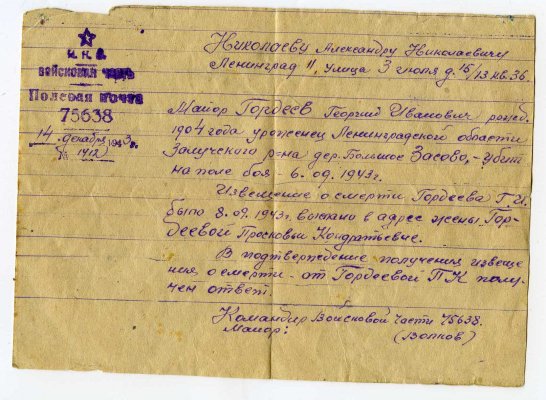 Н.К.О.
ВОЙСКОВАЯ ЧАСТЬ
Полевая почта
75638
14 декабря 1943г.
№ 1412
Николаеву Александру Николаевичу
Ленинград 11, улица 3 июля д. 15/13 кв. 36.
Майор Гордеев Георгий Иванович рожд.
1904 года уроженец Ленинградской области
Залучского р-на дер. Большое Засово, - убит
на поле боя - 6.09.1943г.
Извещение о смерти Гордеева Г.И.
было 8.09.1943г. выслано в адрес жены, Гор-
деевой Просковьи Кондратьевне.
В подтверждение получения извеще
ния о смерти - от Гордеевой П К полу-
чен ответ.
Командир Войсковой части 75638.
Майор: (Волков)